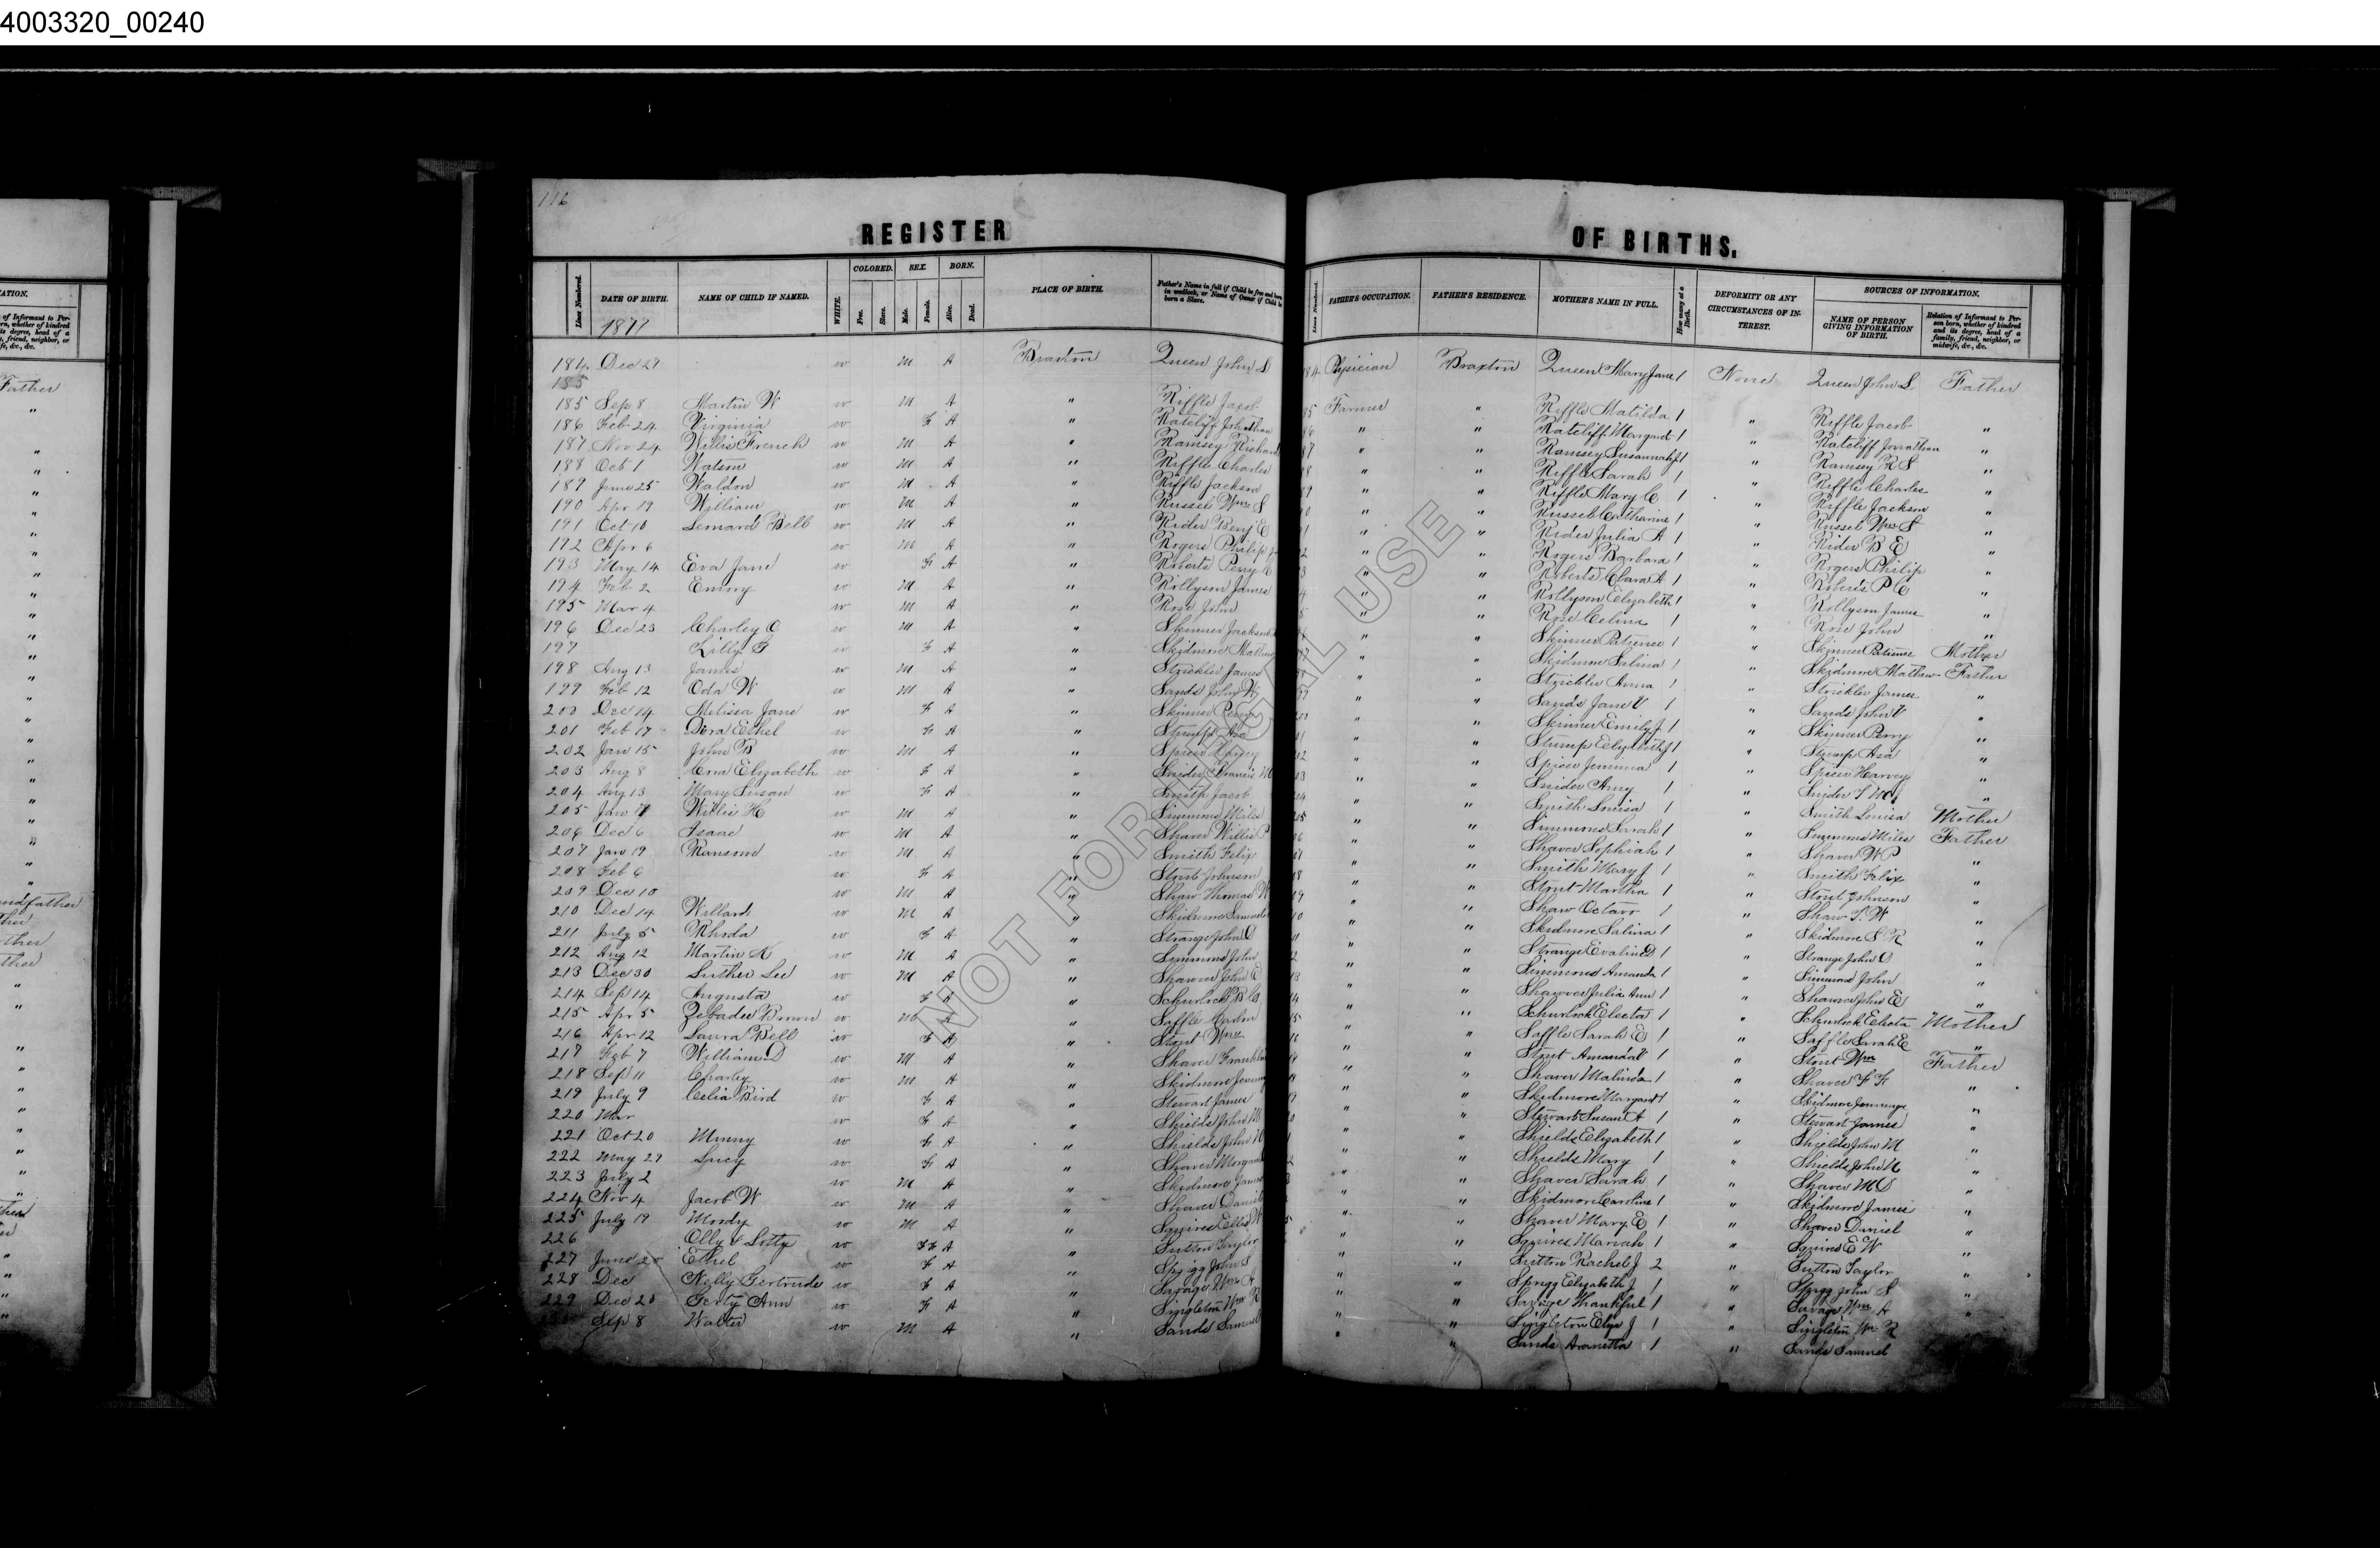 4003320_00240
116
REGISTER OF BIRTHS.
Lines Numbered. DATE OF BIRTH. NAME OF CHILD IF NAMED. WHITE. COLORED. Free. Slave. SEX. Male. Female. BORN. Alive. Dead. PLACE OF BIRTH. Father's Name in full if Child be free and born in wedlock, or Name of Owner if Child be born a Slave. Lines Numbered. FATHER'S OCCUPATION. FATHER'S RESIDENCE. MOTHER'S NAME IN FULL. How many at a Birth. DEFORMITY OR ANY CIRCUMSTANCES OF INTEREST. SOURCES OF INFORMATION. NAME OF PERSON GIVING INFORMATION OF BIRTH. Relation of Informant to Person born, whether of kindred and its degree, head of a family, friend, neighbor, or midwife, &c., &c.
1877
184 Dec 29 w M A Braxton Queen John S 84 Physician Braxton Queen Mary Jane 1 None Queen John S Father
185
185 Sep 8 Martin W w M A " Riffle Jacob 85 Farmer " Riffle Matilda 1 " Riffle Jacob "
186 Feb 24 Virginia w F A " Ratcliff Johnathan 86 " " Ratcliff Margaret 1 " Ratcliff Jonathan "
187 Nov 24 Willis French w M A " Ramsey Richard 87 " " Ramsey Susannah 1 " Ramsey R S "
188 Oct 1 Watson w M A " Riffle Charles " " Riffle Sarah 1 " Riffle Charles "
189 June 25 Waldon w M A " Riffle Jackson 89 " " Riffle Mary C 1 " Riffle Jackson "
190 Apr 19 William w M A " Russel Wm S " " Russel Catharine 1 " Russel Wm S "
191 Oct 10 Leonard Bell w M A " Rider Benj E " " Rider Julia A 1 " Rider B E "
192 Apr 6 w M A " Rogers Philip " " Rogers Barbara 1 " Rogers Philip "
193 May 14 Eva Jane w F A " Roberts Perry C " " Roberts Clara A 1 " Roberts P C "
194 Feb 2 Emory w M A " Rollyson James " " Rollyson Elizabeth 1 " Rollyson James "
195 Mar 4 w M A " Rose John " " Rose Celina 1 " Rose John "
196 Dec 23 Charley O w M A " Skinner Jackson " " Skinner Patience 1 " Skinner Patience Mother
197 Lilly F w F A " Skidmore Mathew 97 " " Skidmore Salina 1 " Skidmore Mathew Father
198 Aug 13 James w M A " Strickler James " " Strickler Anna 1 " Strickler James "
199 Feb 12 Oda W w M A " Sands John W 99 " " Sands Jane V 1 " Sands John V "
200 Dec 14 Melissa Jane w F A " Skinner Perry " " Skinner Emily J 1 " Skinner Perry "
201 Feb 17 Dora Ethel w F A " Stump Asa " " Stump Elizabeth J 1 " Stump Asa "
202 Jan 15 John B w M A " Spicer Harvey " " Spicer Jemima 1 " Spicer Harvey "
203 Aug 8 Cora Elizabeth w F A " Snider Francis M " " Snider Amy 1 " Snider "
204 Aug 13 Mary Susan w F A " Smith Jacob " " Smith Louisa 1 " Smith Louisa Mother
205 Jan Willis H w M A " Simmons Miles " " Simmons Sarah 1 " Simmons Miles Father
206 Dec 6 Isaac w M A " Shaver Willis P " " Shaver Sophiah 1 " Shaver W P "
207 Jan 19 Ransome w M A " Smith Felix " " Smith Mary J 1 " Smith Felix "
208 Feb 6 w F A " Stout Johnson " " Stout Martha 1 " Stout Johnson "
209 Dec 10 w M A " Shaw Thomas W " " Shaw Octavo 1 " Shaw T. W "
210 Dec 14 Willard w M A " Skidmore Samuel " " Skidmore Salina 1 " Skidmore S R "
211 July 5 Rhoda w F A " Strange John O " " Strange Evaline D 1 " Strange John O "
212 Aug 12 Martin K w M A " Simmons John " " Simmons Amanda 1 " Simmons John "
213 Dec 30 Luther Lee w M A " Shawver John E " " Shawver Julia Ann 1 " Shawver John E "
214 Sep 14 Augusta w F A " Schurlock B " " Schurlock Electa 1 " Schurlock Electa Mother
215 Apr 5 Zebadee Brown w M A " Saffle " " Saffle Sarah E 1 " Saffle Sarah E "
216 Apr 12 Laura Bell w F A " Stout Wm " " Stout Amanda V 1 " Stout Wm Father
217 Feb 7 William D w M A " Shaver Franklin " " Shaver Malinda 1 " Shaver F F "
218 Sep 11 Charley w M A " Skidmore " " Skidmore Margaret 1 " Skidmore Jennings "
219 July 9 Celia Bird w F A " Stewart James " " Stewart Susan A 1 " Stewart James "
220 Mar w F A " Shields John M " " Shields Elizabeth 1 " Shields John M "
221 Oct 20 Minny w F A " Shields John " " Shields Mary 1 " Shields John N "
222 May 29 Lucy w F A " Shaver Morgan " " Shaver Sarah 1 " Shaver M D "
223 July 2 w M A " Skidmore James " " Skidmore Caroline 1 " Skidmore James "
224 Nov 4 Jacob W w M A " Shaver Daniel " " Shaver Mary E 1 " Shaver Daniel "
225 July 19 Moody w M A " Squires Ellis W " " Squires Mariah 1 " Squires E W "
226 Olly & Lotty w F F A " Sutton Taylor " " Sutton Rachel J 2 " Sutton Taylor "
227 June 20 Ethel w F A " Sprigg John S " " Sprigg Elizabeth J 1 " Sprigg John S "
228 Dec Nelly Gertrude w F A " Savage Wm A " " Savage Thankful 1 " Savage Wm A "
229 Dec 20 Gerty Ann w F A " Singleton Wm R " " Singleton Eliza J 1 " Singleton Wm R
Sep 8 Walter w M A " Sands Samuel " " Sands Aranetta 1 " Sands Samuel
NOT FOR LEGAL USE